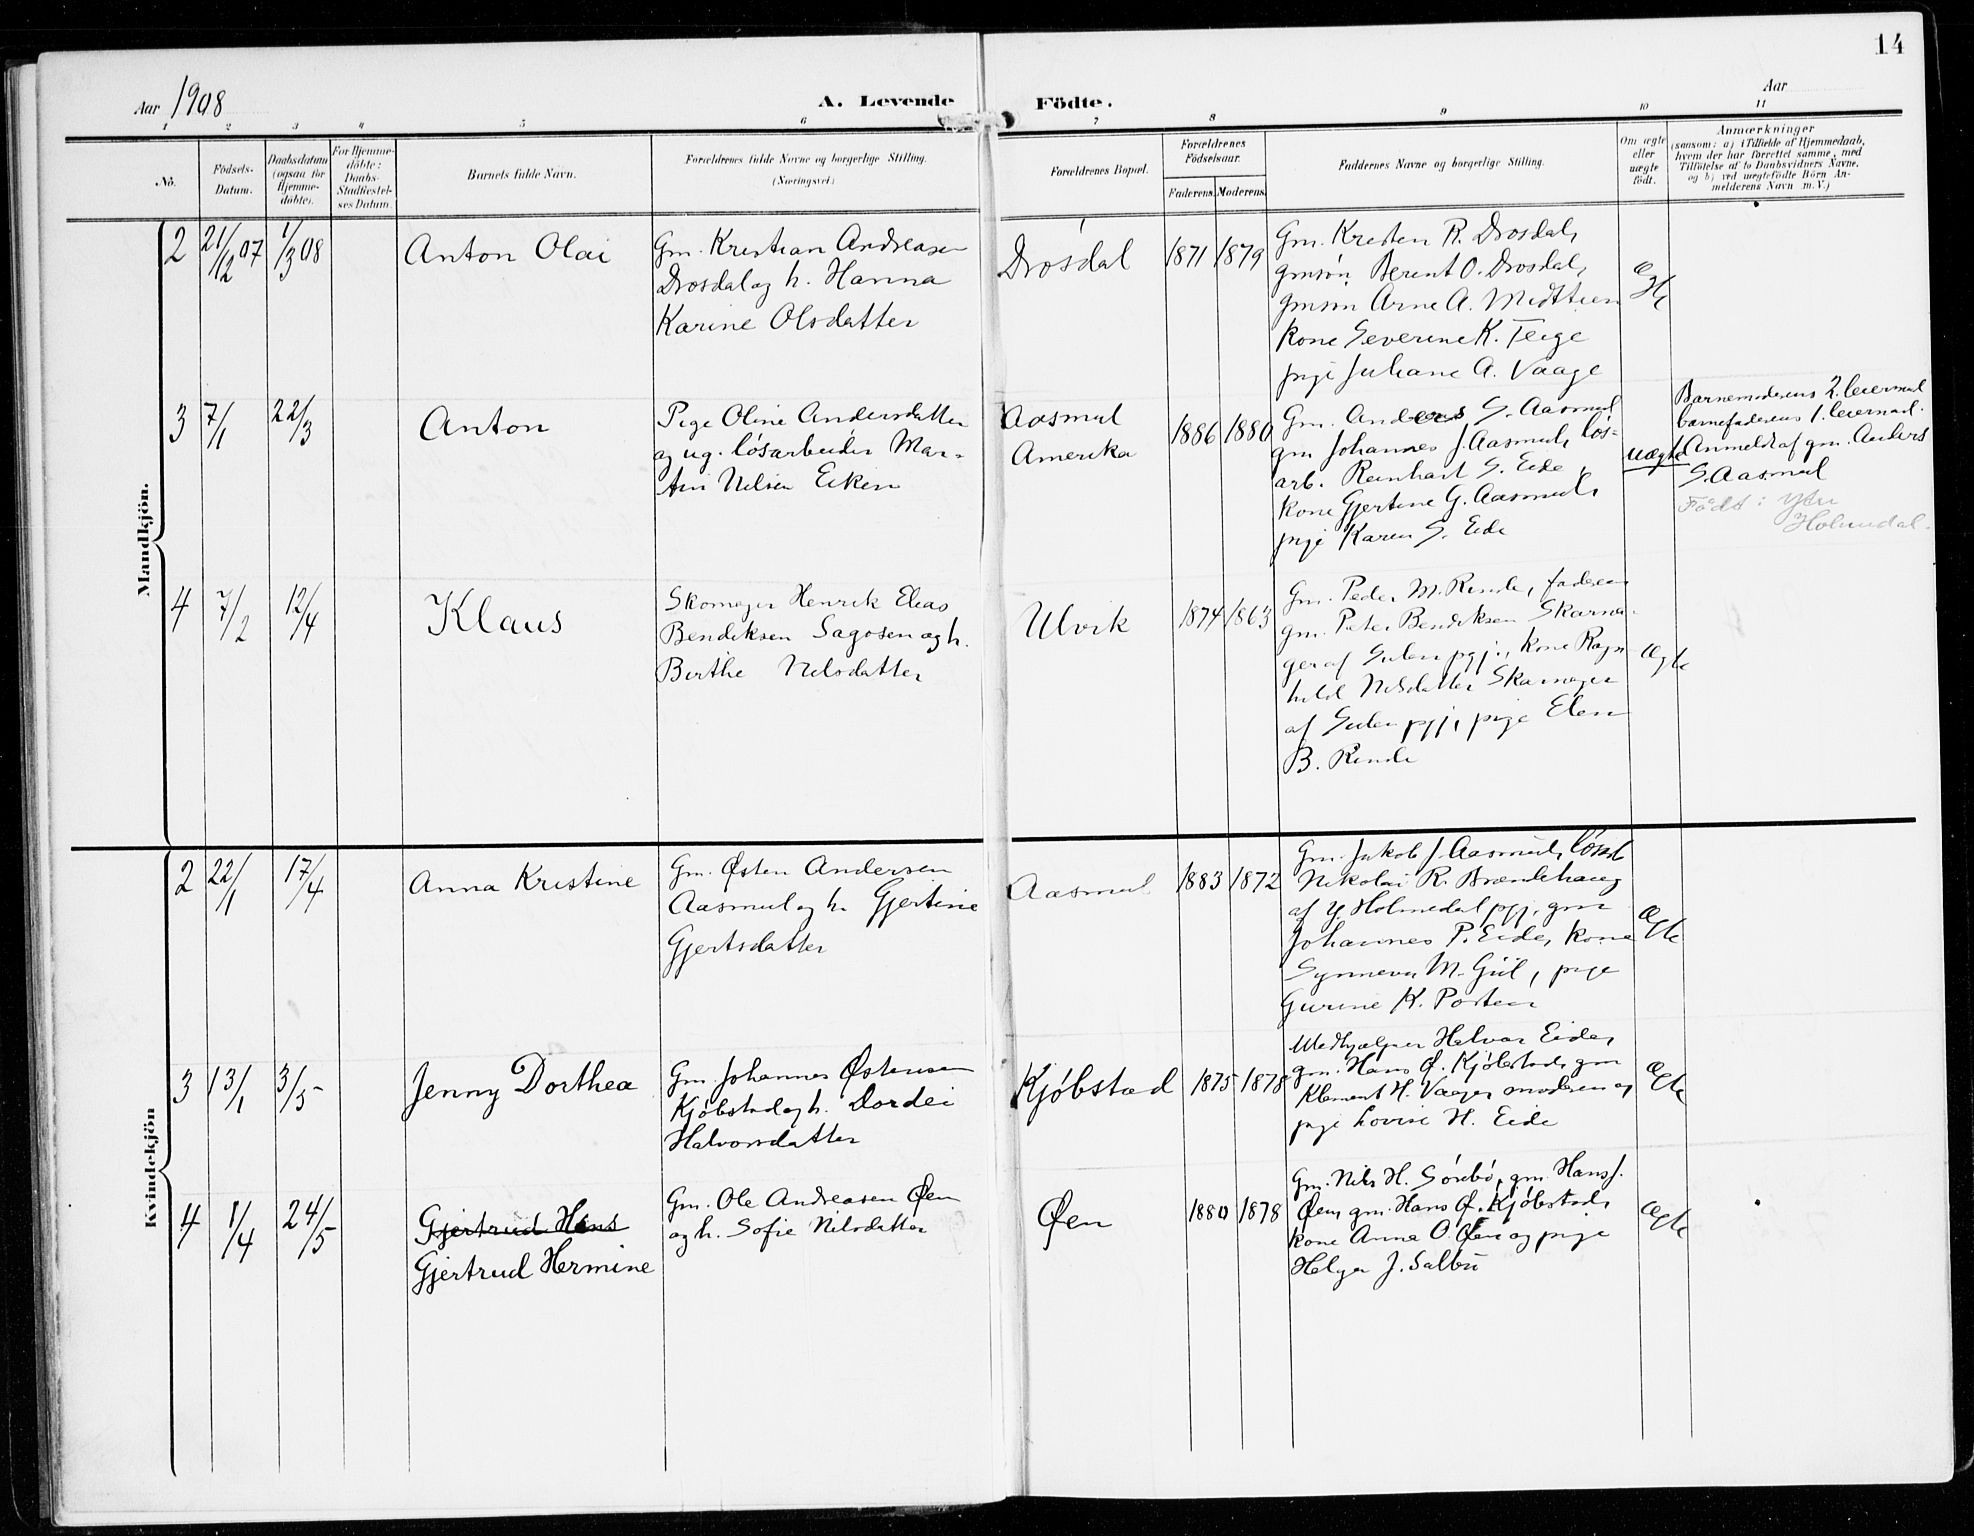 14
Aar 1908
A. Levende Födte.
Aar
1 2 3 4 5 6 7 8 9 10 11
No.
Födsels-
Datum.
Daabsdatum
(ogsaa for
Hjemme-
döbte).
For Hjemme-
döbte:
Daabs-
Stadfæstel-
ses Datum.
Barnets fulde Navn.
Forældrenes fulde Navne og borgerlige Stilling.
(Næringsvei)
Forældrenes Bopæl.
Forældrenes
Födselsaar.
Faderens.
Moderens.
Faddernes Navne og borgerlige Stilling.
Om ægte
eller
uægte
födt.
Anmærkninger
(saasom: a) i Tilfælde af Hjemmedaab,
hvem der har forrettet samme, med
Tilföielse af to Daabsvidners Navne,
og b) ved uægtefödte Börn An-
melderens Navn m.V.)
Mandkjön.
2
21/12 07
1/3 08
Anton Olai
Gm. Kristian Andreasen
Drosdal og h. Hanna
Karine Olsdatter
Drosdal
1871
1879
Gm. Kresten R. Drosdal,
gmsøn Berent O. Drosdal,
gmsøn Arne A. Midttun
kone Severine K. Teige
pige Juliane A. Vaage
ægte
3
7/1
22/3
Anton
Pige Oline Andersdatter
og ug. løsarbeider Mar-
tin Nilsen Eiken
Aasmul
Amerika
1886
1880
Gm. Anders S. Aasmul
gm Johannes J. Aasmul, løs-
arb. Reinhart S. Eide,
kone Gjertine G. Aasmul,
pige Karen S. Eide
uægte
Barnemoderens 2. leiermaal
barnefaderens 1. leiermaal.
Anmeldt af gm. Anders
S. Aasmul
Født: Ytre
Holmedal.
4
7/2
12/4
Klaus
Skomager Henrik Elias
Bendiksen Sagosen og h.
Berthe Nilsdatter
Ulvik
1874
1863
Gm. Peder M. Rinde, faderen
gm. Peter Bendiksen Skarna-
ger af Gulen pgj., kone Ragn
hild Nilsdatter Skarnager
af Gulen pgj, pige Elen
B. Rinde
ægte
Kvindekjön
2
22/1
17/4
Anna Kristine
Gm. Østen Andersen
Aasmul og h. Gjertine
Gjertsdatter
Aasmul
1883
1872
Gm. Jakob J. Aasmul,
Nikolai R. Brændehaug
af Y. Holmedal pgj, gm
Johannes P. Eide, kone
Synneva M. Gul, pige
Gurine K. Porteen
ægte
3
13/1
3/5
Jenny Dorthea
Gm. Johannes Østensen
Kjøbstad og h. Dordei
Halvorsdatter
Kjøbstad
1875
1878
Medhjælper Halvar Eide,
gm. Hans Ø. Kjøbstad, gm
Klement H. Vaage, moderen og
pige Lovise H. Eide
ægte
4
1/4
24/5
Gjertrud Hans
Gjertrud Hermine
Gm. Ole Andreasen Øen
og h. Sofie Nilsdatter
Øen
1880
1878
Gm. Nils H. Sørebø, gm. Hans J.
Øen, gm. Hans Ø. Kjøbstad,
kone Anna O. Øen og pige
Helga J. Salbu
ægte